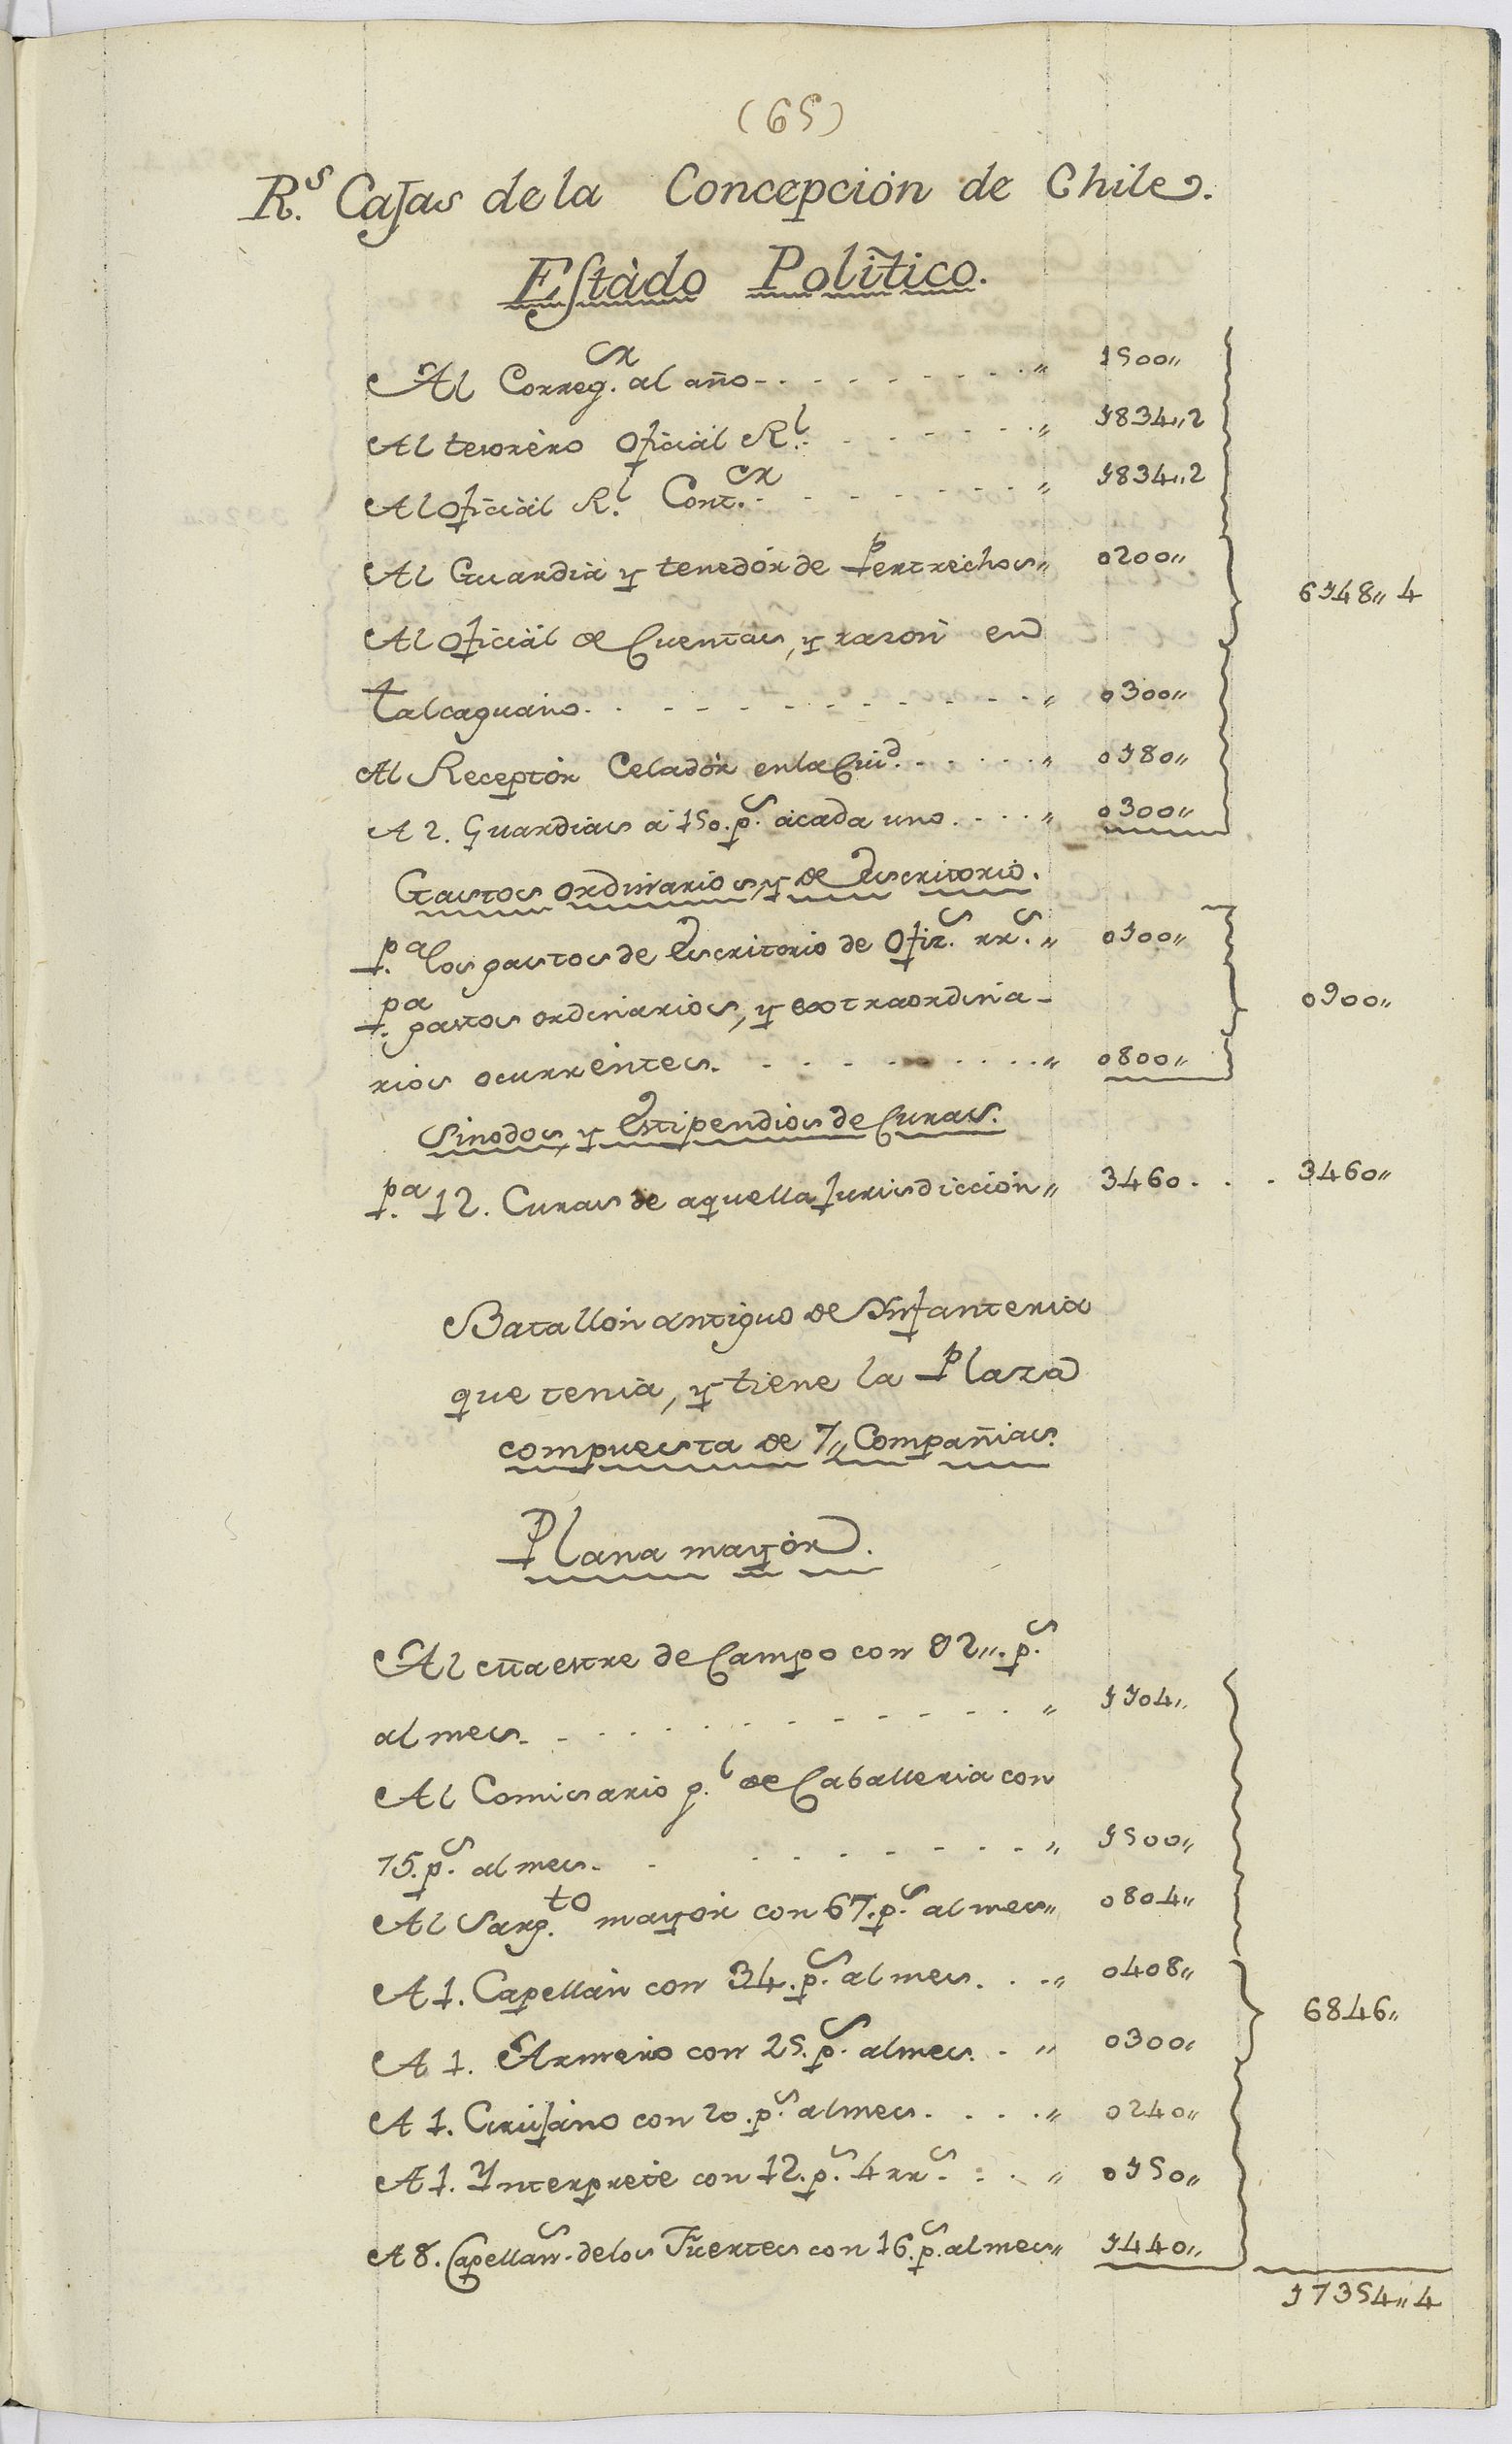 (65)
R.s Cajas de la Concepción de Chile.
Estàdo Politico.
Al Correg.or al año - . - - - - - - - " 1500"
Al tesorèro Oficiàl R.l - - - - - - " 1834"2
Al Oficiàl R.l Cont.or - - - - - - - " 1834"2
Al Guardia y tenedór de Pertrechos" 0200"
Al Oficiàl de Cuentas, y razon en
talcaguano. - - - - - - - - - - " 0300"
Al Receptór Celadór en la Ciud. - - - - " 0180"
A 2. Guardias a 150. p.s àcada uno. . . . " 0300"
6148" 4
Gastos ordinarios, y de Escritorio.
p.a los gastos de Escritorio de Ofiz.s rr.s " 0100"
p.a gastos ordinarios, y extraordina-
rios ocurrèntes. - - - - - - - " 0800"
0900"
Sinodos, y Estipendios de Curas.
p.a 12. Curas de aquella Jurisdicción" 3460. . . 3460"
Batallón antiguo de Infanteria
que tenia, y tiene la Plaza
compuesta de 7" Compañias.
Plana mayór.
Al Maestre de Campo con 92". p.s
al mes. - - - - - - - - - - - " 1104"
Al Comisario g.l de Caballeria con
75. p.s al mes. - - - - - - - - " 1500"
Al Sarg.to mayór con 67. p.s al mes" 0804"
A 1. Capellán con 34. p.s al mes. . . " 0408"
A 1. Armero con 25. p.s al mes. - " 0300"
A 1. Cirujano con 20. p.s al mes. . . . " 0240"
A 1. Ynterprete con 12. p.s 4 rr.s . . " 0150"
A 8. Capellan.s de los Fuertes con 16. p.s al mes" 1440"
6846"
17354" 4